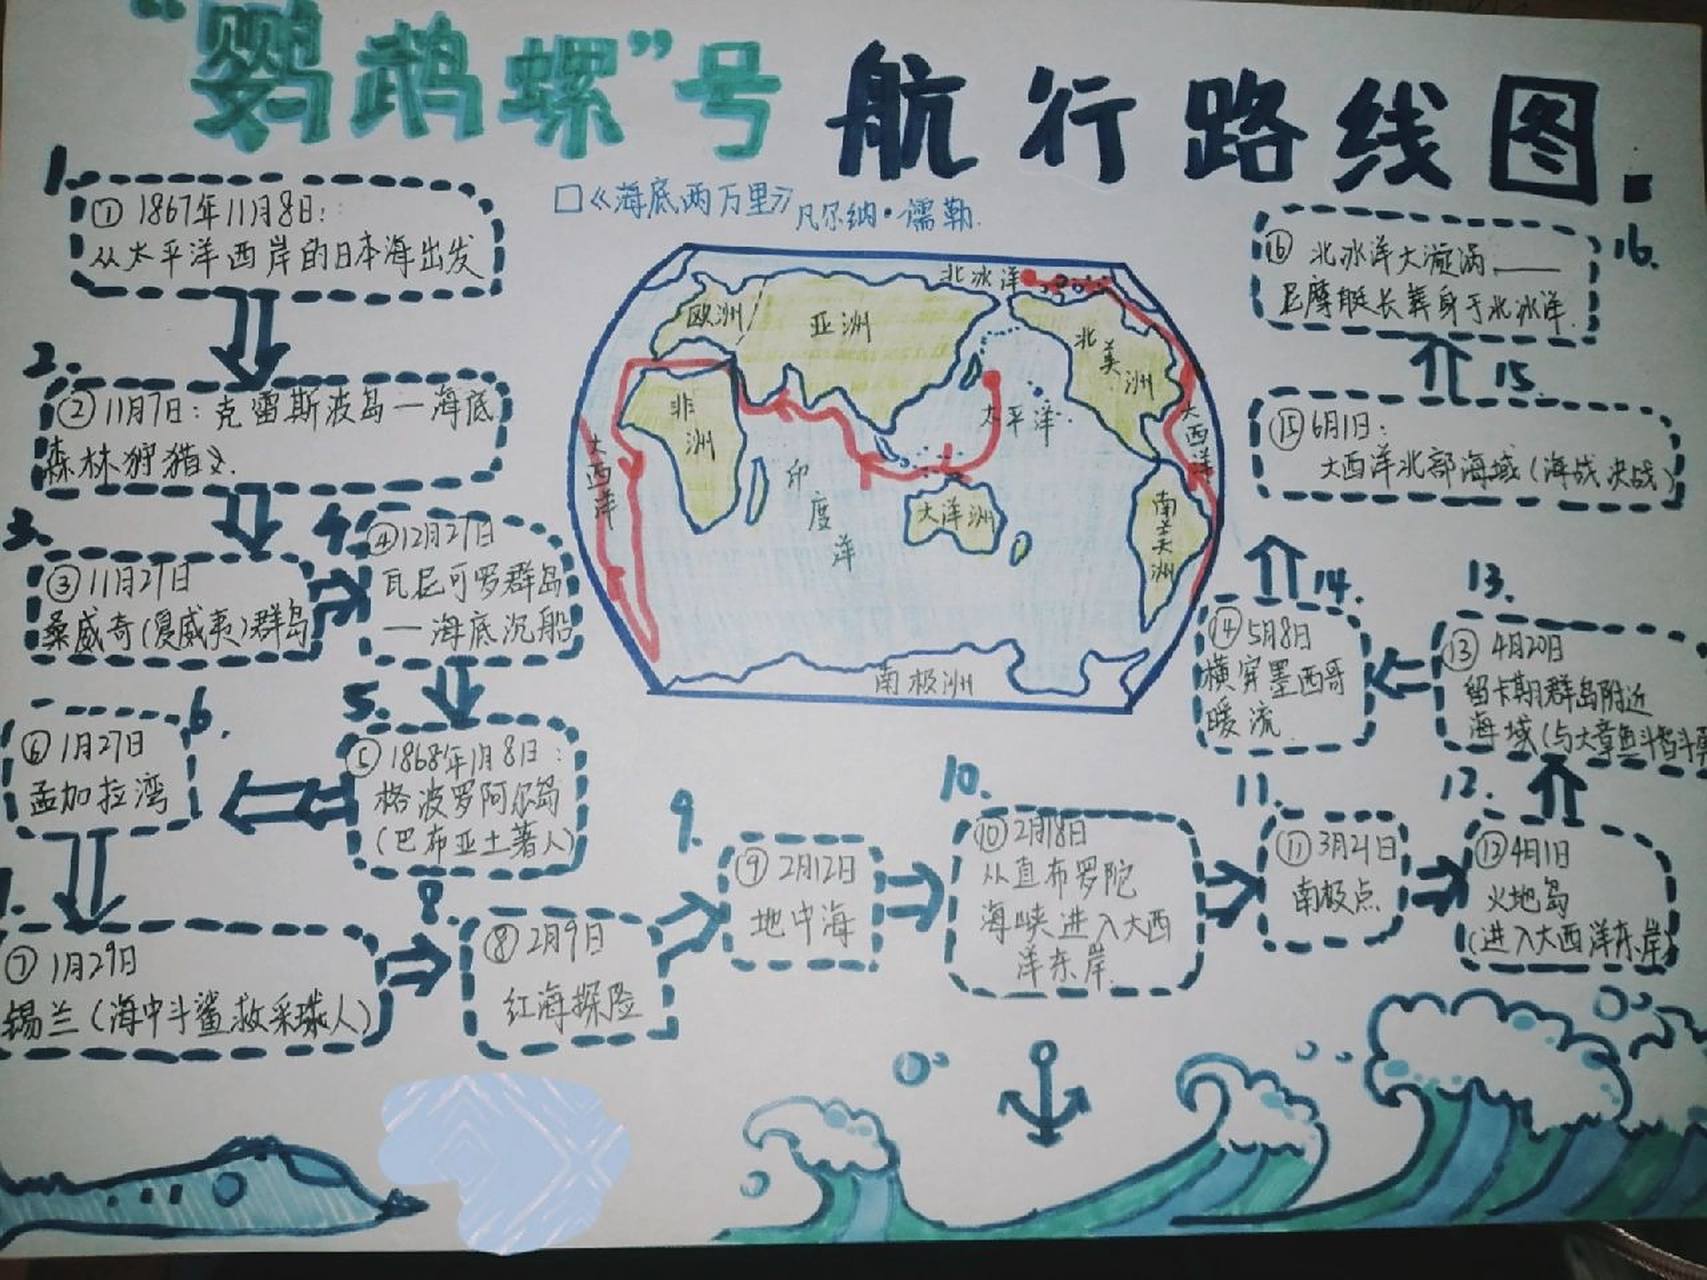 “鹦鹉螺”号 航行路线图.
□《海底两万里》凡尔纳·儒勒.
1.
① 1867年11月8日:
从太平洋西岸的日本海出发
2.
② 11月7日: 克雷斯波岛—海底
森林狩猎
3.
③ 11月27日
桑威奇(夏威夷)群岛
4.
④ 12月27日
瓦尼可罗群岛
—海底沉船
5.
⑤ 1868年1月8日:
格波罗阿尔岛
(巴布亚土著人)
6.
⑥ 1月27日
孟加拉湾
⑦ 1月29日
锡兰(海中斗鲨救采珠人)
8.
⑧ 2月9日
红海探险
9.
⑨ 2月12日
地中海
10.
⑩ 2月18日
从直布罗陀
海峡进入大西
洋东岸.
11.
⑪ 3月21日
南极点
12.
⑫ 4月1日
火地岛
(进入大西洋东岸)
13.
⑬ 4月20日
留卡期群岛附近
海域(与大章鱼斗智斗勇
14.
⑭ 5月8日
横穿墨西哥
暖流.
15.
⑮ 6月1日:
大西洋北部海域(海战决战)
16.
⑯ 北冰洋大漩涡——
尼摩艇长葬身于北冰洋.
北冰洋
欧洲
亚洲
北美洲
非洲
太平洋.
大西洋
大西洋
印度洋
大洋洲
南美洲
南极洲